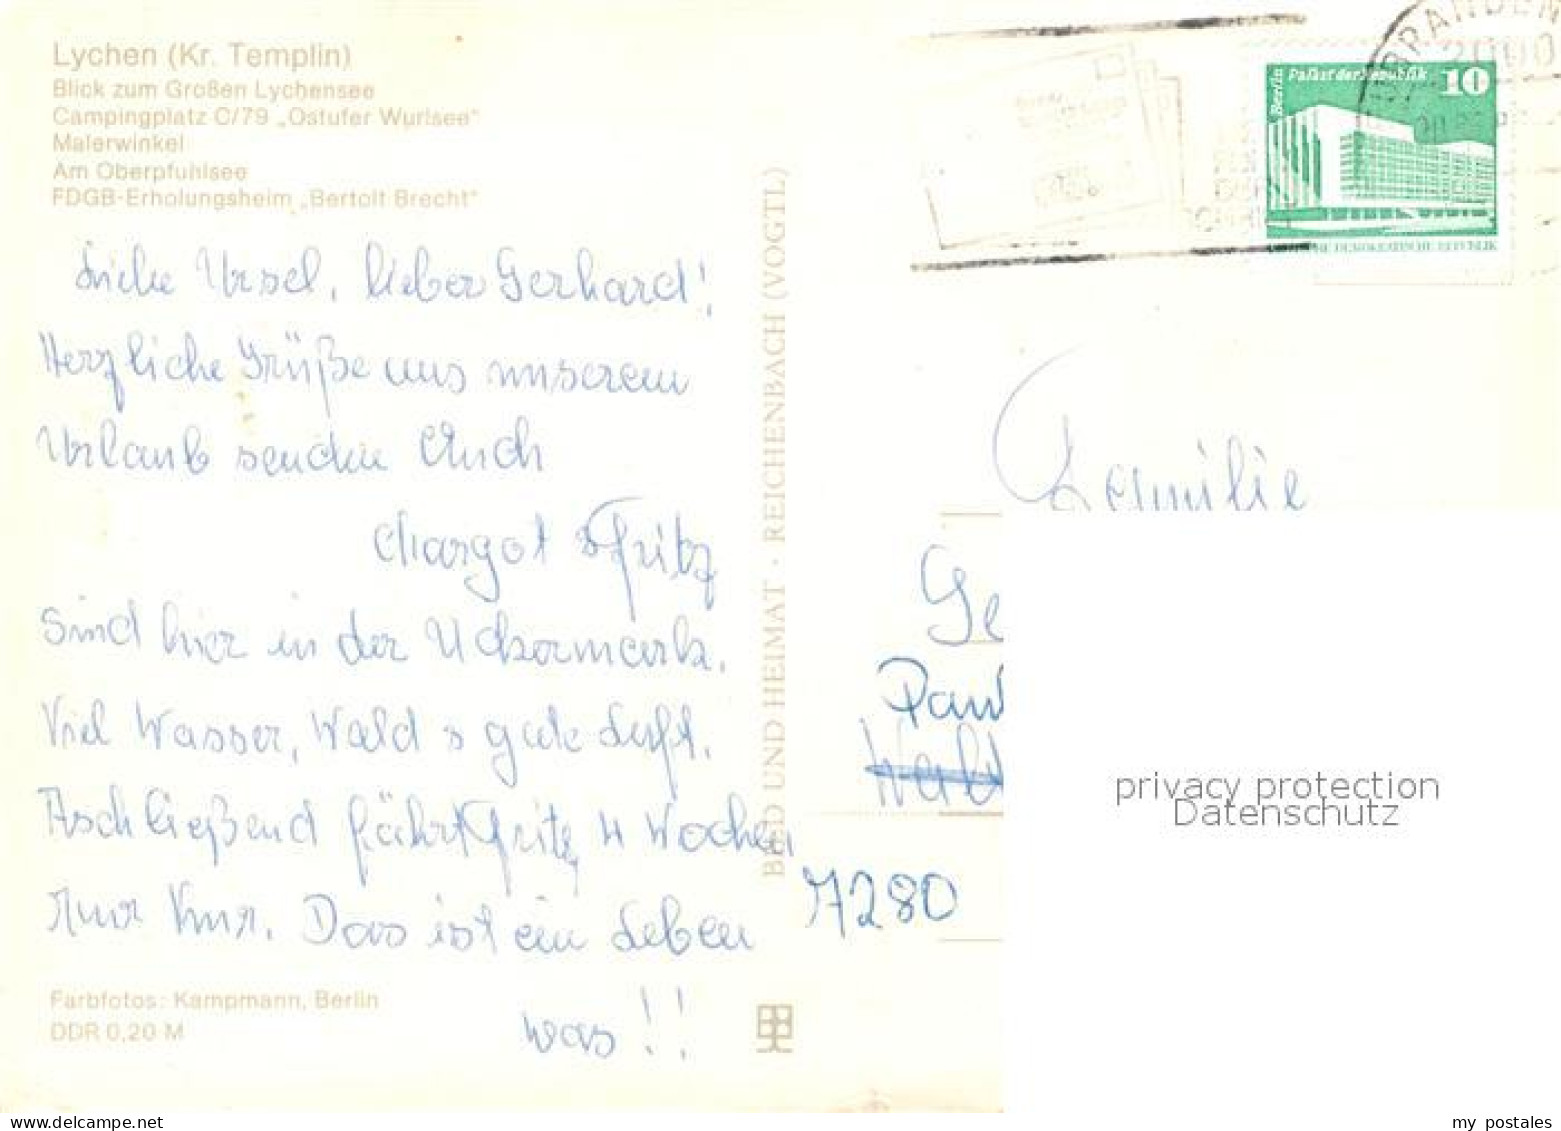 Lychen (Kr. Templin)
Blick zum Großen Lychensee
Campingplatz C/79 „Ostufer Wurlsee“
Malerwinkel
Am Oberpfuhlsee
FDGB-Erholungsheim „Bertolt Brecht“
Liebe Ursel, lieber Gerhard!
Herzliche Grüße aus unserem
Urlaub senden Euch
Margot & Fritz
Sind hier in der Uckermark.
Viel Wasser, Wald & gute Luft.
Aschließend fährt Fritz 4 Wochen
zur Kur. Das ist ein Leben
was!!
Farbfotos: Kampmann, Berlin
DDR 0,20 M
BILD UND HEIMAT · REICHENBACH (VOGTL)
BRANDEN
2000
Berlin Palast der Republik 10
DEMOKRATISCHE REPUBLIK
Familie
Ge
7280
privacy protection
Datenschutz
my postales